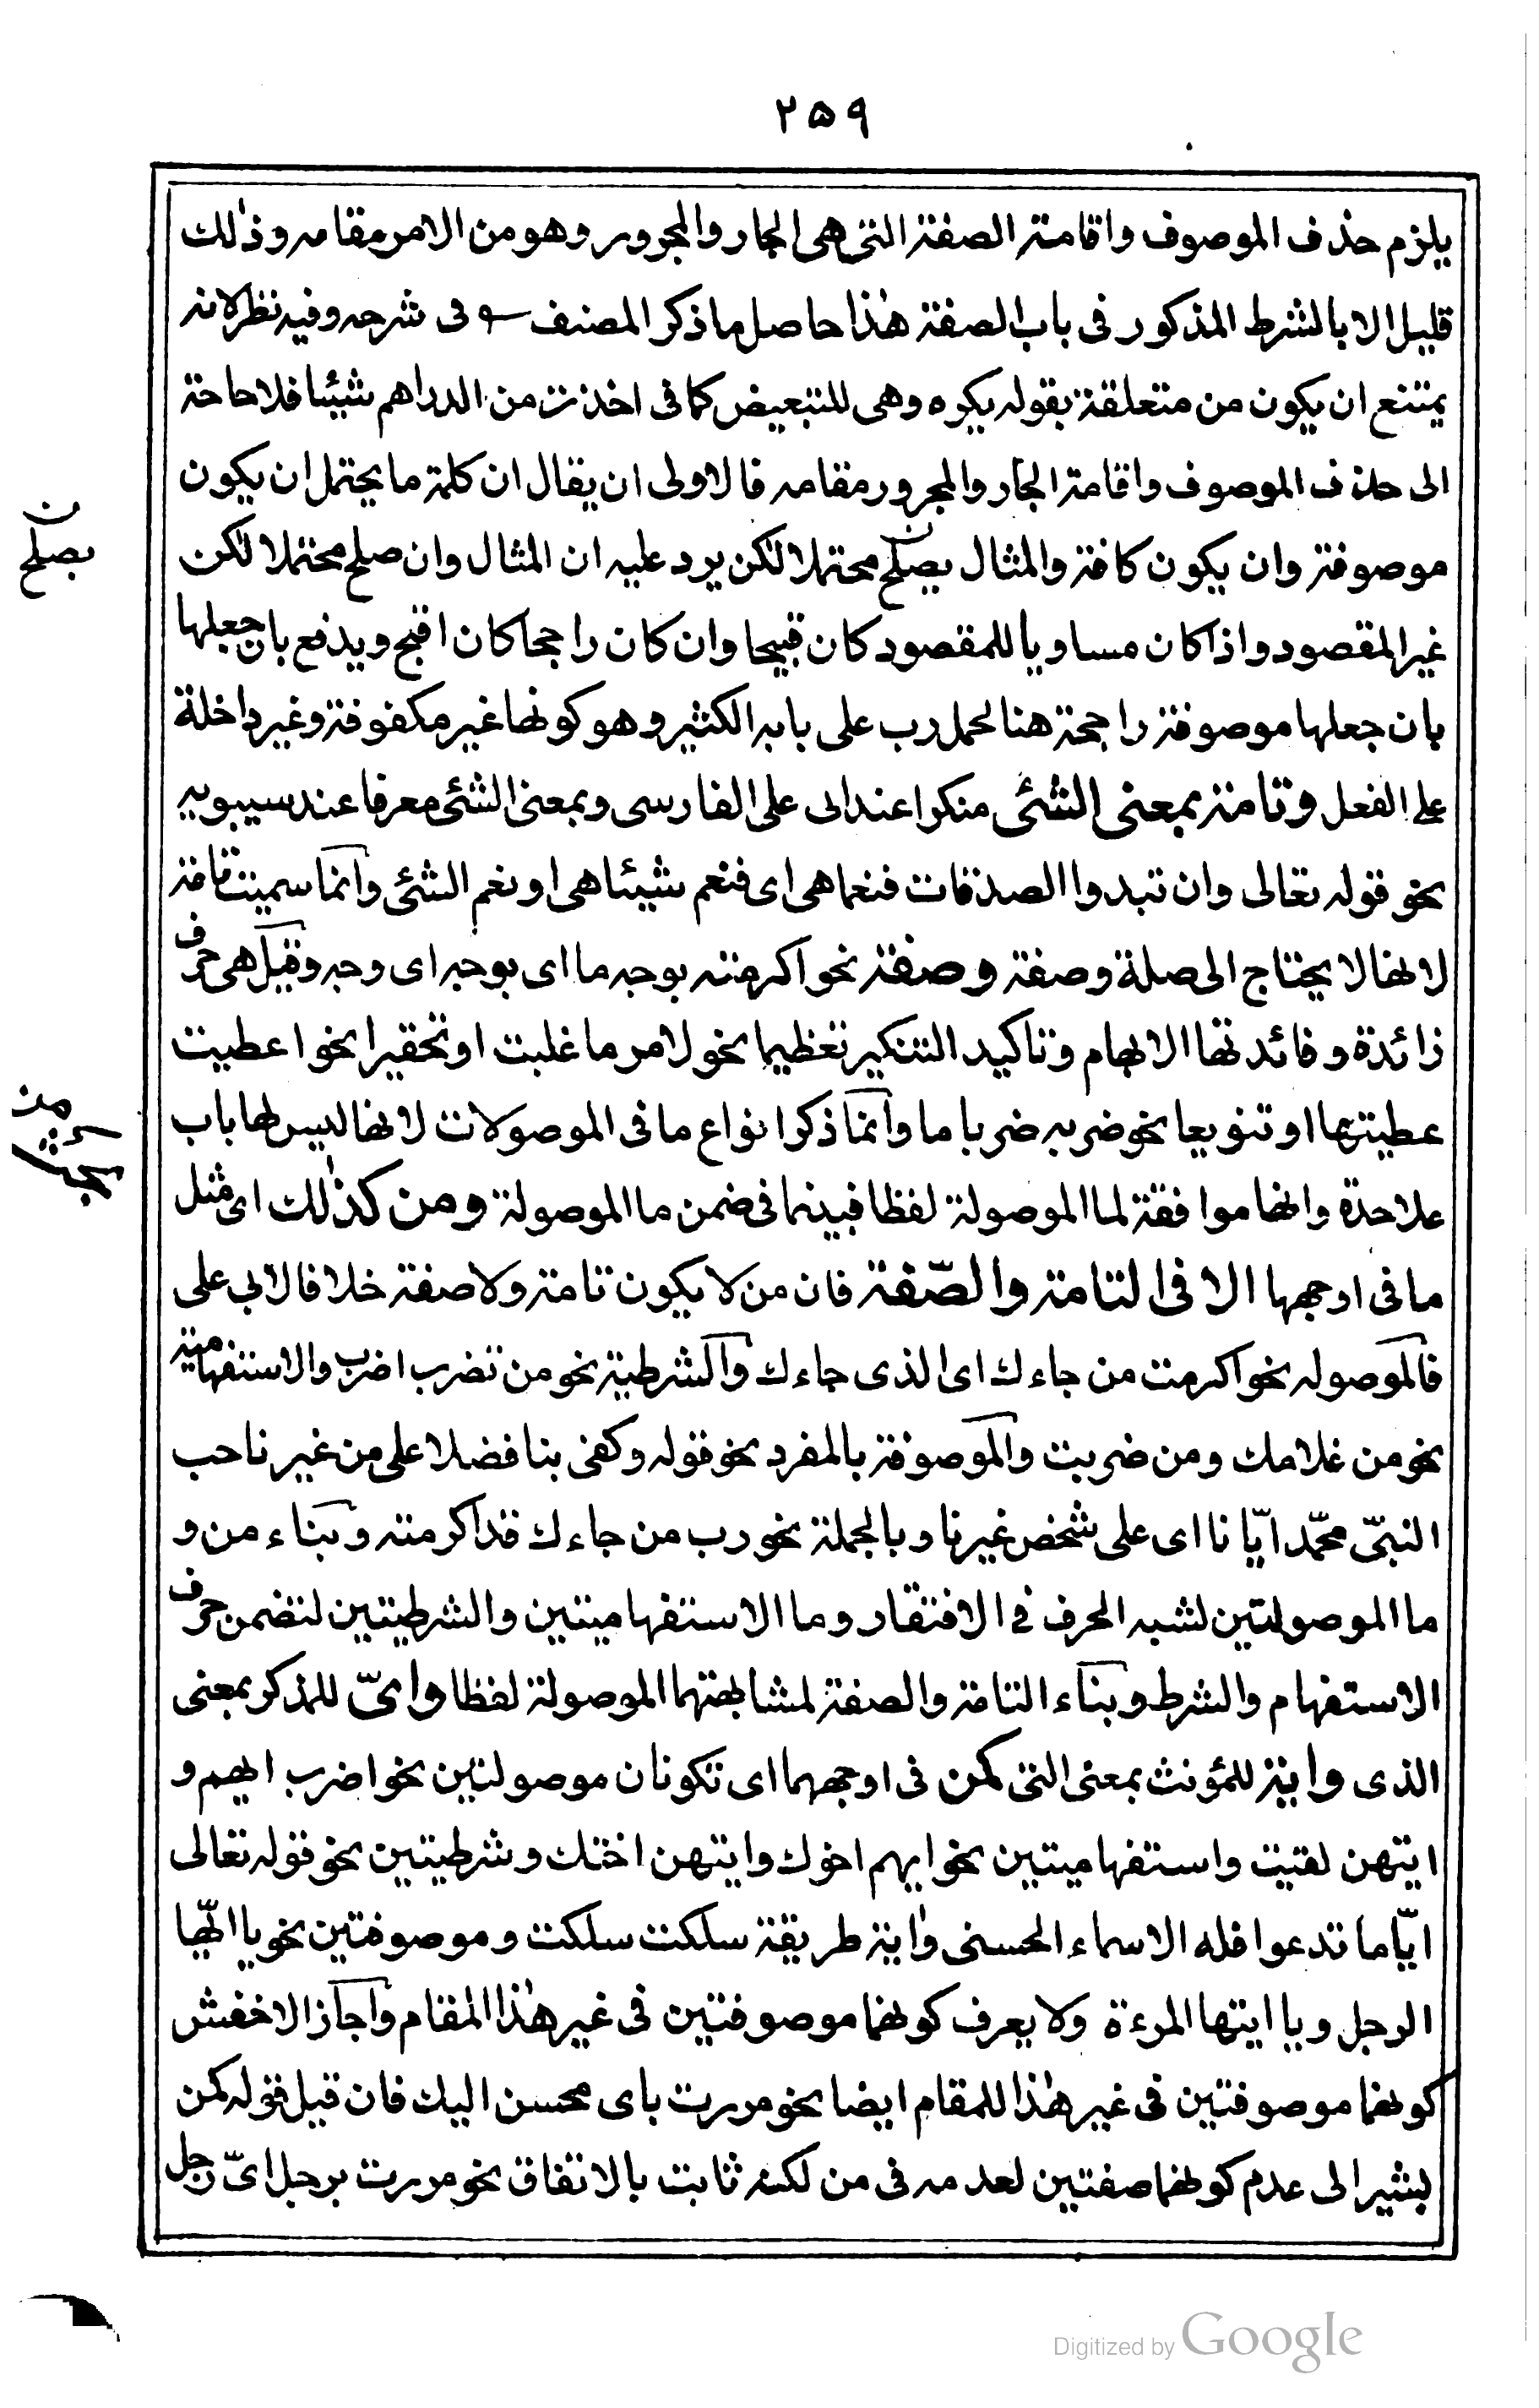 ٢٥٩
يلزم حذف الموصوف واقامة الصفة التى هى الجار والمجرور وهو من الامر مقامه وذٰلك
قليل الا بالشرط المذكور فى باب الصفة هٰذا حاصل ما ذكر المصنف فى شرحه وفيه نظر لانه
يمتنع ان يكون من متعلقة بقوله يكره وهى للتبعيض كما فى اخذت من الدراهم شيئا فلا حاجة
الى حذف الموصوف واقامة الجار والمجرور مقامه فالاولى ان يقال ان كلمة ما يحتمل ان يكون
موصوفة وان يكون كافة والمثال يصلح محتملا لٰكن يرد عليه ان المثال وان صلح محتملا لٰكن
يصلح ن
غير المقصود واذا كان مساويا للمقصود كان قبيحا وان كان راجحا كان اقبح ويدفع بان جعلها
بان جعلها موصوفة راجحة هنا لحمل رب على بابه الكثير وهو كونها غير مكفوفة وغير داخلة
على الفعل وتامة بمعنى الشئ منكرا عند ابى على الفارسى وبمعنى الشئ معرفا عند سيبويه
نحو قوله تعالى وان تبدوا الصدقات فنعما هى اى فنعم شيئا هى او نعم الشئ وانما سميت تامة
لانها لا يحتاج الى صلة وصفة وصفة نحو اكرمته بوجه ما اى بوجه اى وجه وقيل هى حرف
زائدة وفائدتها الابهام وتاكيد التنكير تعظيما نحو لامر ما غلبت او تحقيرا نحو اعطيت
عطية ما او تنويعا نحو ضربه ضربا ما وانما ذكر انواع ما فى الموصولات لانها ليس لها باب
علاحدة وانها موافقة لما الموصولة لفظا فبينها فى ضمن ما الموصولة ومن كذٰلك اى مثل
ما فى اوجهها الا فى التامة والصّفة فان من لا يكون تامة ولا صفة خلافا لابى على
فالموصوله نحو اكرمت من جاءك اى الذى جاءك والشرطية نحو من تضرب اضرب والاستفهامية
نحو من غلامك ومن ضربت والموصوفة بالمفرد نحو قوله وكفى بنا فضلا على من غيرنا حب
النبىّ محمّد ايّانا اى على شخص غيرنا وبالجملة نحو رب من جاءك قد اكرمته وبناء من و
ما الموصولتين لشبه الحرف فى الافتقار وما الاستفهاميتين والشرطيتين لتضمن حرف
الاستفهام والشرط وبناء التامة والصفة لمشابهتهما الموصولة لفظا واىّ للمذكر بمعنى
الذى واية للمؤنث بمعنى التى كمن فى اوجهها اى تكونان موصولتين نحو اضرب ايهم و
ايتهن لقيت واستفهاميتين نحو ايهم اخوك وايتهن اختك وشرطيتين نحو قوله تعالى
ايّا ما تدعوا فله الاسماء الحسنى واية طريقة سلكت سلكت وموصوفتين نحو يا ايّها
الرجل ويا ايتها المرءة ولا يعرف كونهما موصوفتين فى غير هٰذا المقام واجاز الاخفش
كونهما موصوفتين فى غير هٰذا المقام ايضا نحو مررت باى محسن اليك فان قيل قوله كمن
يشير الى عدم كونهما صفتين لعدمه فى من لكنه ثابت بالاتفاق نحو مررت برجل اىّ رجل
Digitized by Google